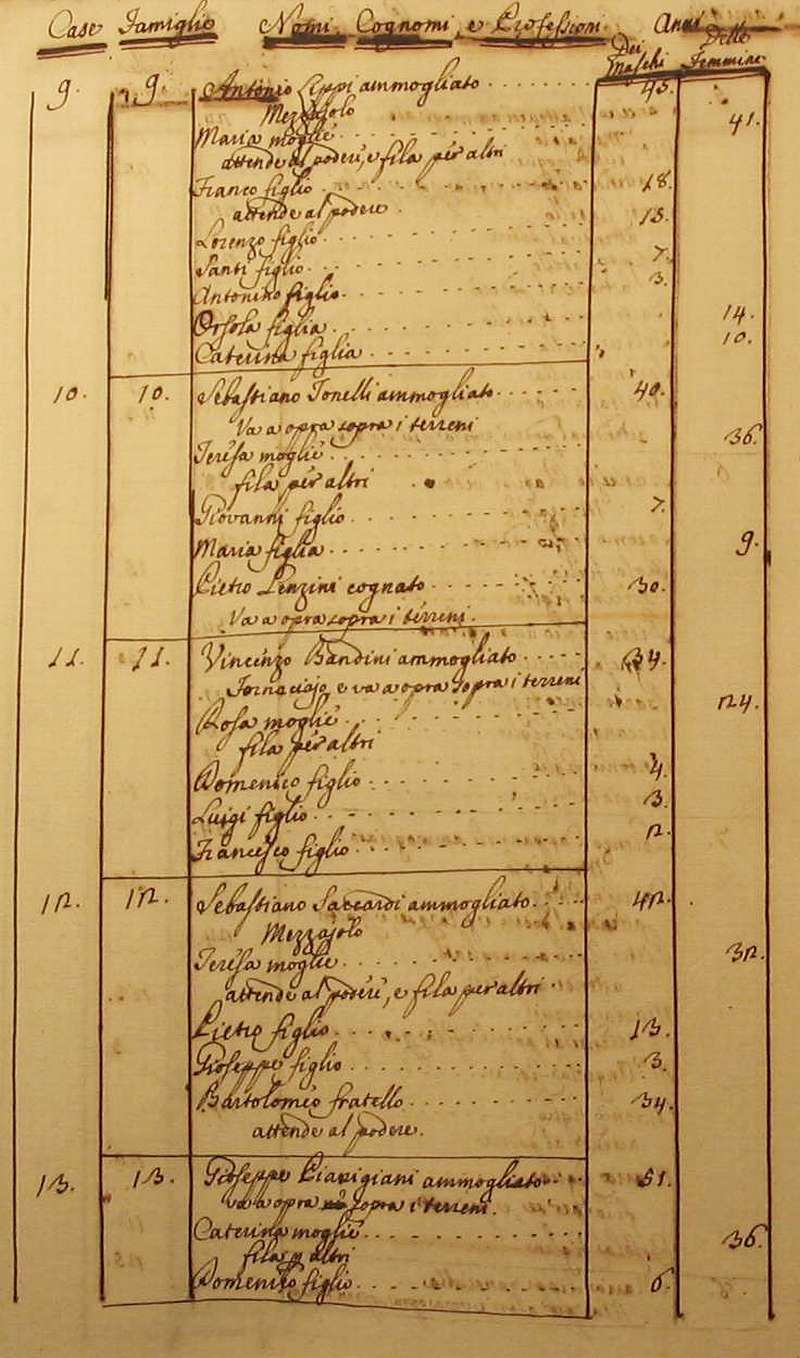 Case Famiglie Nomi, Cognomi, e Professioni Anni
Dei Maschi Delle Femmine
9. 9. Antonio Lippi ammogliato 45.
Mezzajolo
Maria moglie 41.
attende al podere, e fila per altri
Franco figlio 18.
attende al podere.
Lorenzo figlio 15.
Santi figlio 7.
Antonino figlio 3.
Orsola figlia 14.
Caterina figlia 10.
10. 10. Sebastiano Tonelli ammogliato 40.
Va a opra sopra i terreni
Teresa moglie 36.
fila per altri
Giovanni figlio 7.
Maria figlia 9.
Pietro Lenzini cognato 30.
Va a opra sopra i terreni.
11. 11. Vincenzo Bandini ammogliato 34.
Fornaciajo, e va a opra sopra i terreni
Rosa moglie 24.
fila per altri
Domenico figlio 4.
Luigi figlio 3.
Francesco figlio 2.
12. 12. Sebastiano Saccardi ammogliato 42.
Mezzajolo
Teresa moglie 32.
attende al podere, e fila per altri
Pietro figlio 13.
Gioseppe figlio 3.
Bartolomeo fratello 34.
attende al podere.
13. 13. Gioseppe Pianigiani ammogliato 51.
va a opra sopra i terreni.
Caterina moglie 36.
fila p altri
Domenico figlio 6.